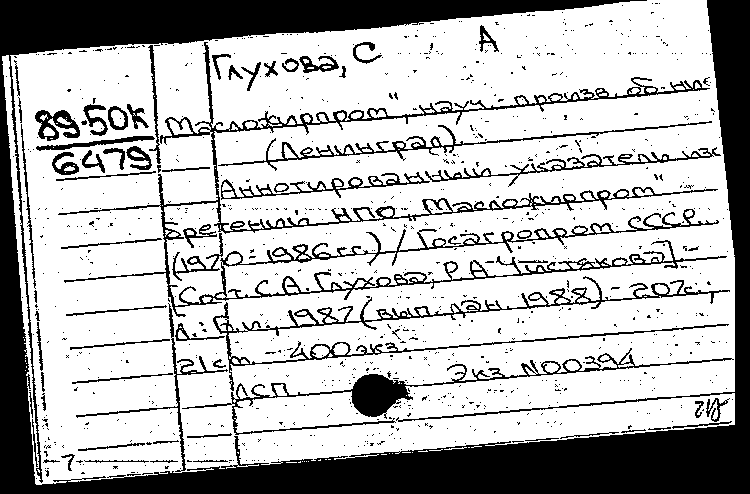 Глухова, С А
89-50к
6479
"Масложирпром", науч.-произв. об-ние
(Ленинград).
Аннотированный указатель изо-
бретений НПО "Масложирпром"
(1970-1986 гг.) / Госагропром СССР.
[Сост. С.А. Глухова, Р.А. Чистякова]. -
Л.: Б.и., 1987 (вып. дан. 1988). - 207с.;
21см. - 400экз.
ДСП. Экз. №00394
7